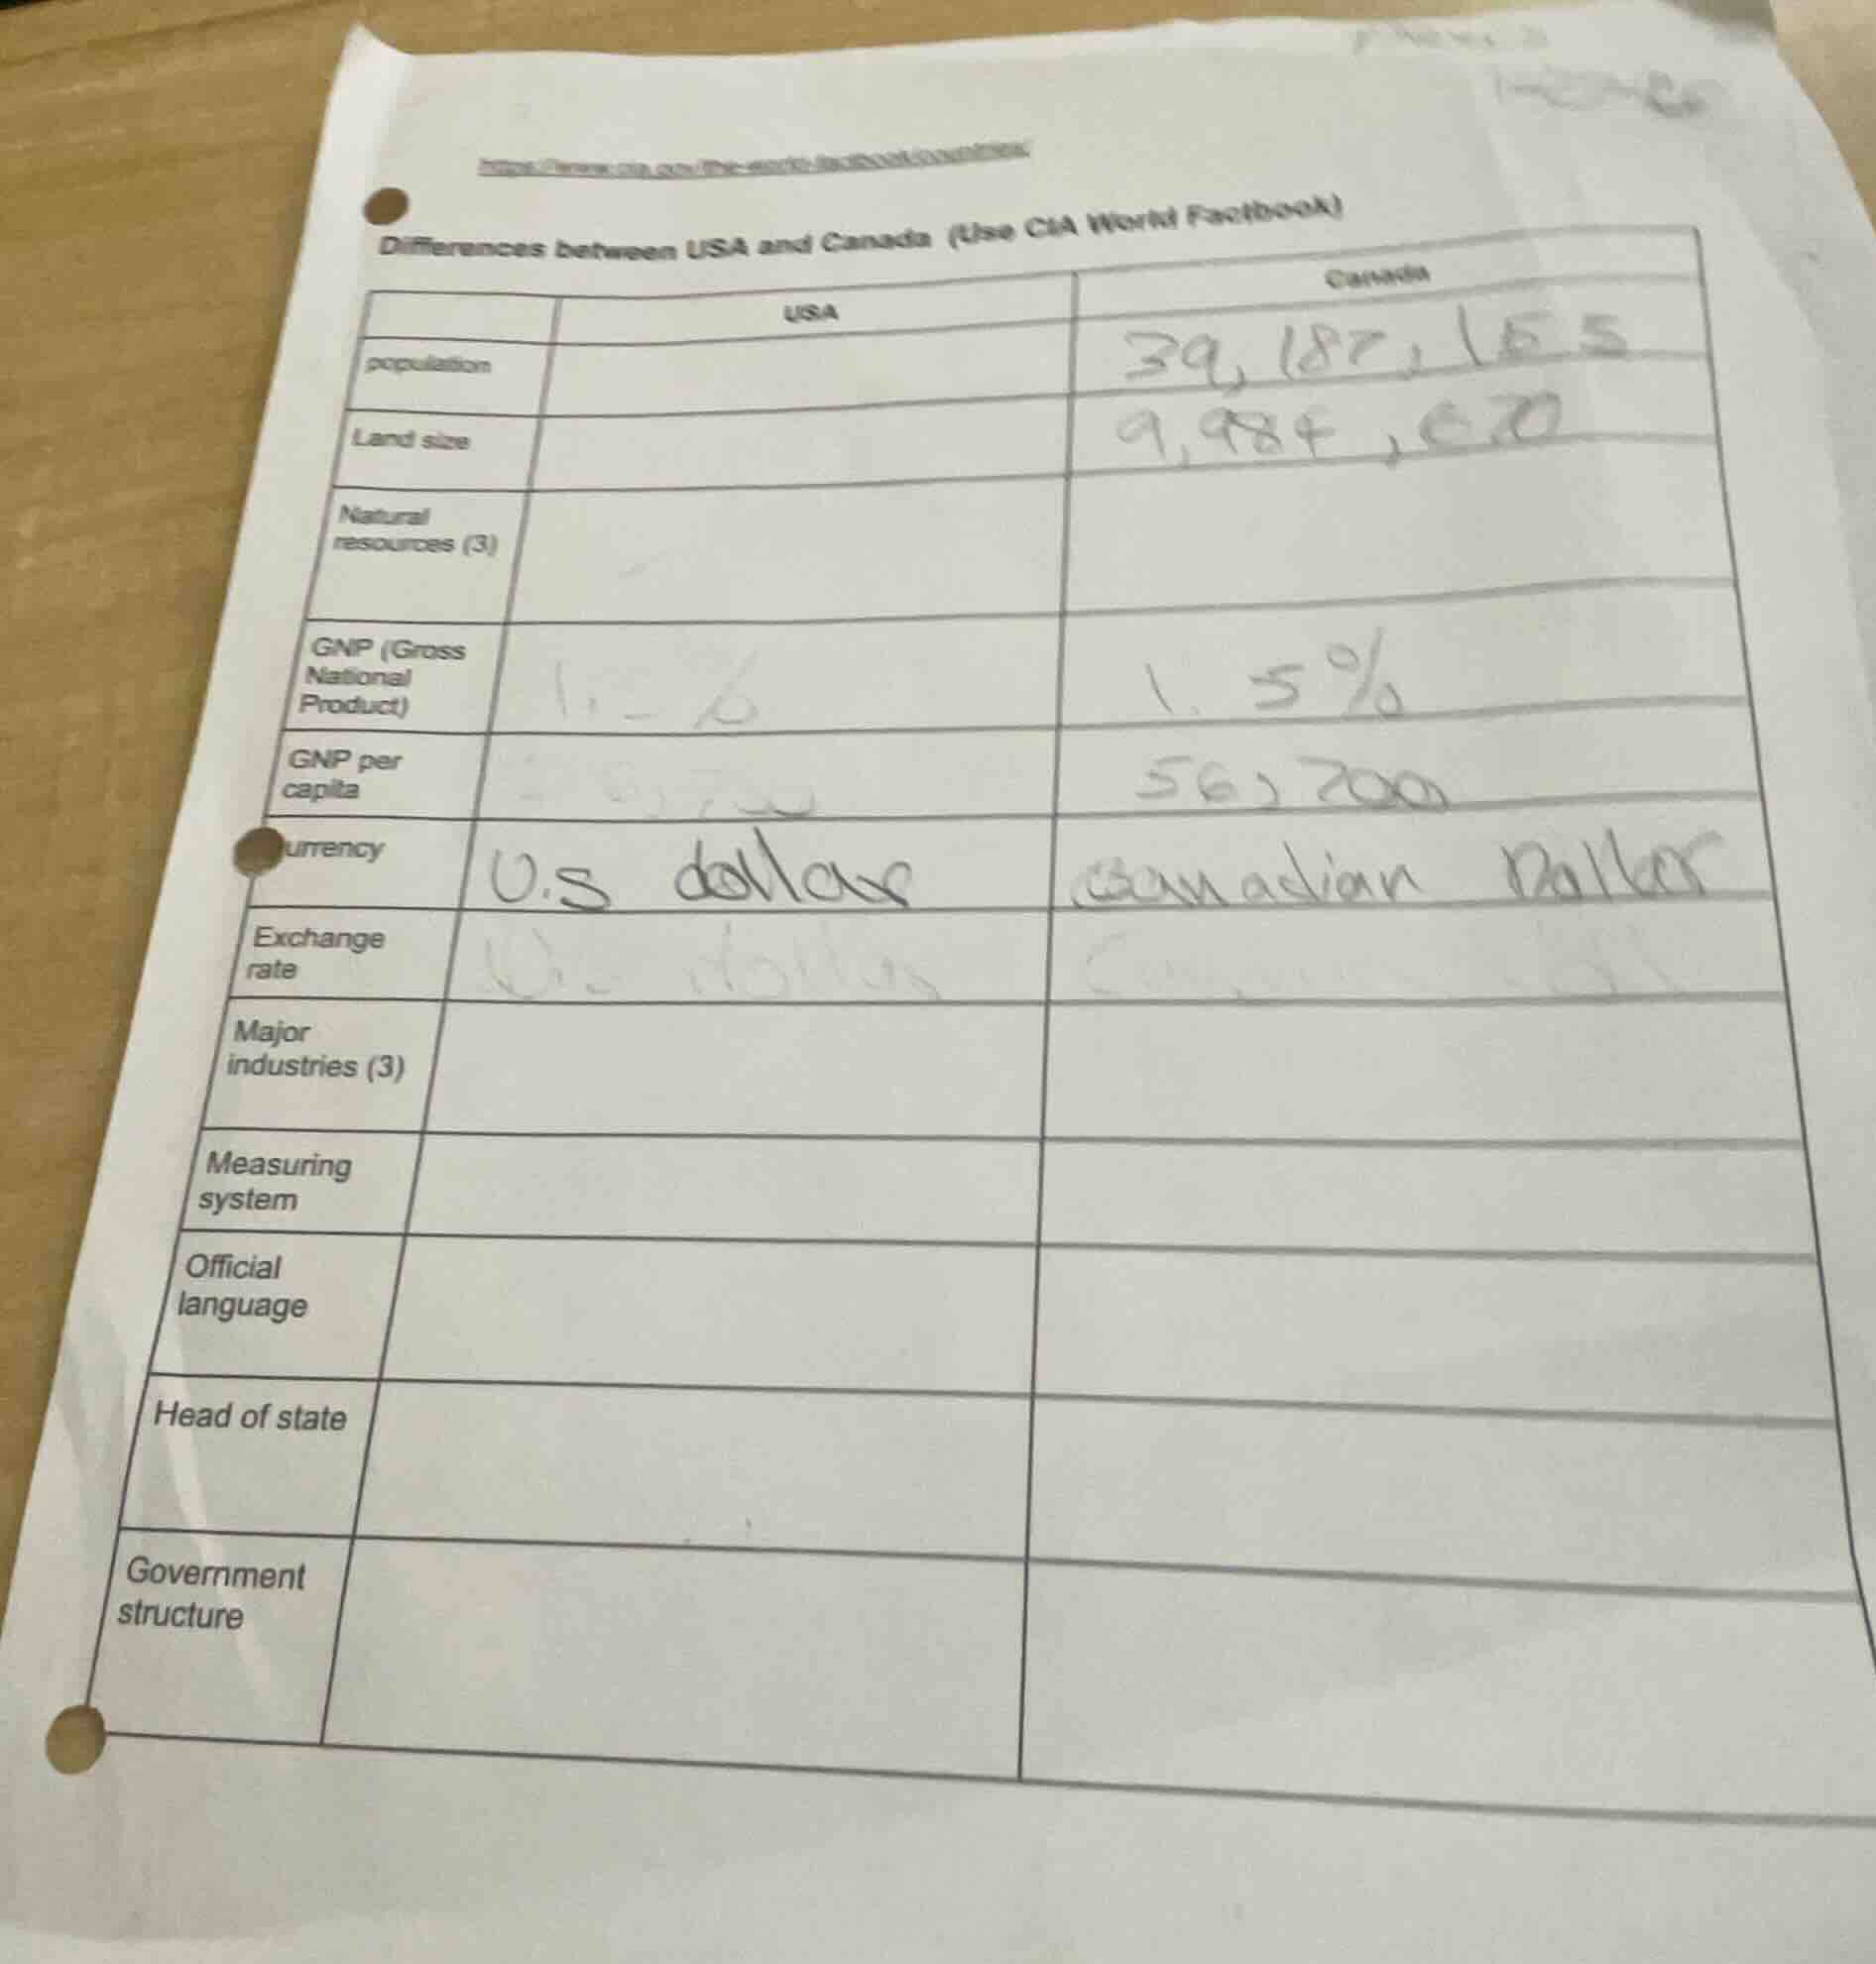 https://www.cia.gov/the-world-factbook/countries/
Differences between USA and Canada (Use CIA World Factbook)
USA
Canada
population
39,187,155
Land size
9,984,670
Natural
resources (3)
GNP (Gross
National
Product)
1.5%
GNP per
capita
56,200
urrency
U.S dollar
Canadian Dollar
Exchange
rate
dollar
Major
industries (3)
Measuring
system
Official
language
Head of state
Government
structure